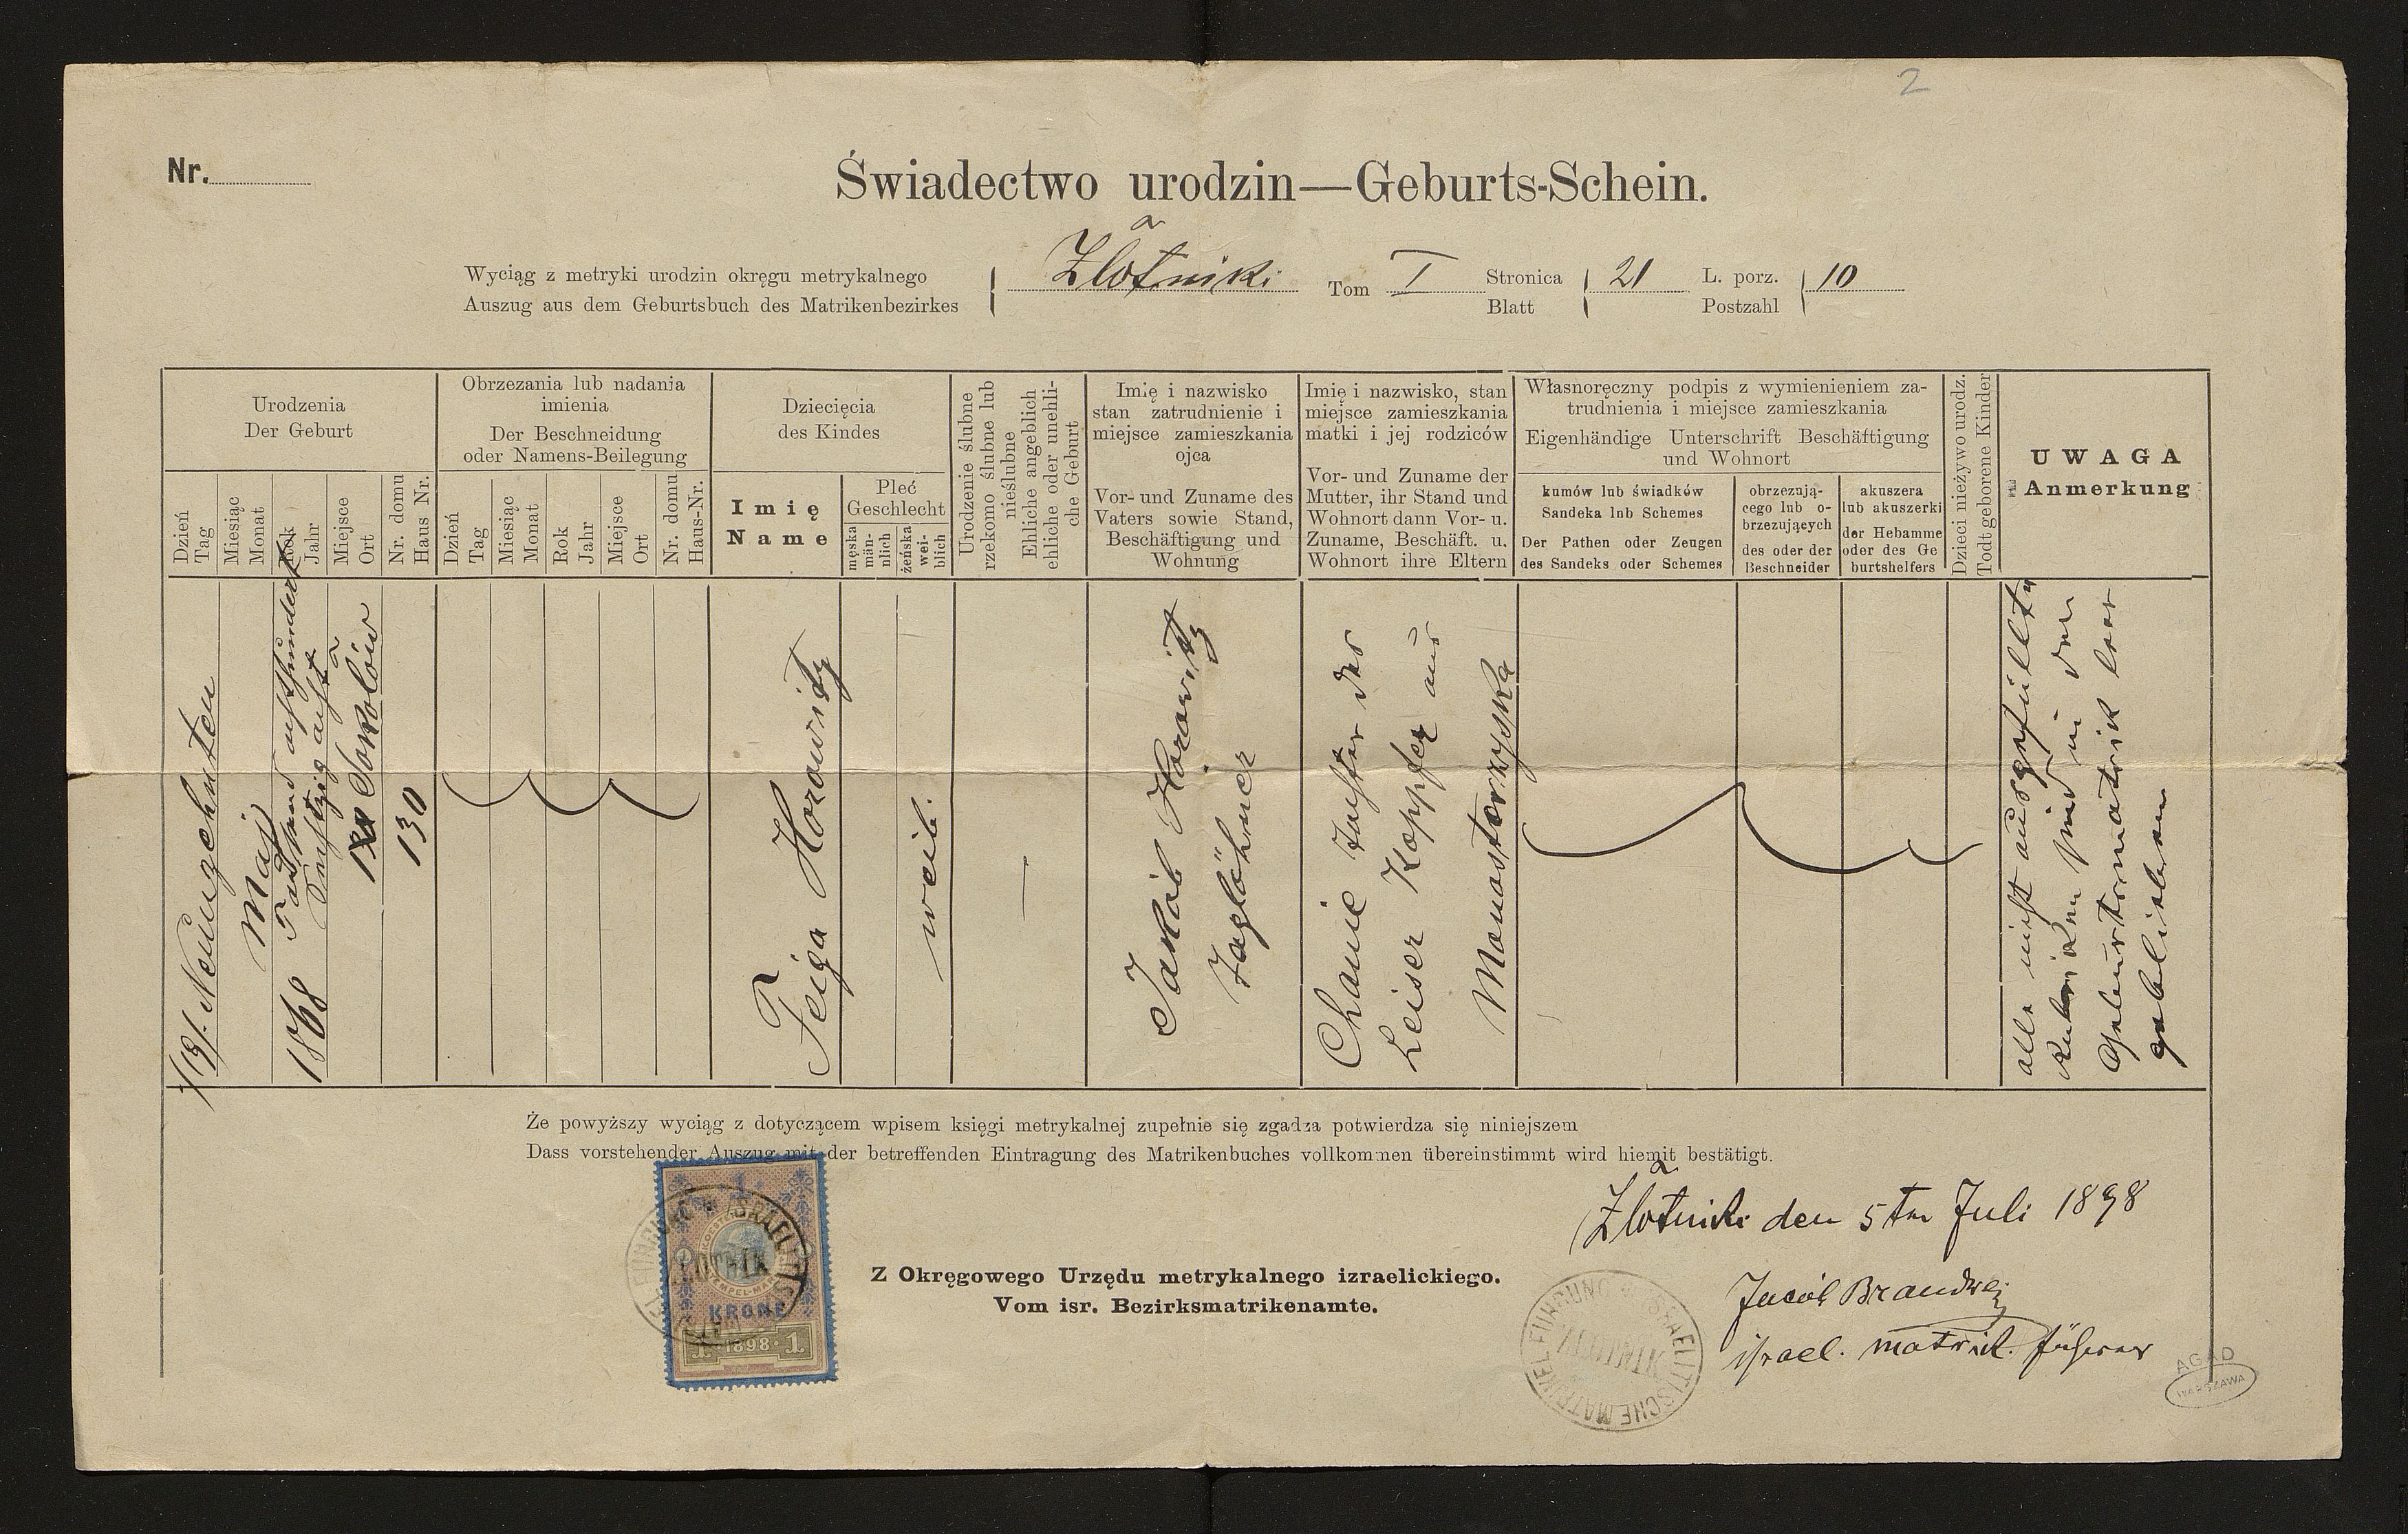 2
Nr.
Świadectwo urodzin—Geburts-Schein.
Wyciąg z metryki urodzin okręgu metrykalnego
Auszug aus dem Geburtsbuch des Matrikenbezirkes
Zlotniki
Tom I
Stronica
Blatt
21
L. porz.
Postzahl
10
Urodzenia
Der Geburt
Dzień
Tag
Miesiąc
Monat
Rok
Jahr
Miejsce
Ort
Nr. domu
Haus Nr.
Obrzezania lub nadania
imienia
Der Beschneidung
oder Namens-Beilegung
Dzień
Tag
Miesiąc
Monat
Rok
Jahr
Miejsce
Ort
Nr. domu
Haus-Nr.
Dziecięcia
des Kindes
Imię
Name
Płeć
Geschlecht
męska
män-
nlich
żeńska
wei-
blich
Urodzenie ślubne
rzekomo ślubne lub
nieślubne
Ehliche angeblich
ehliche oder unehli-
che Geburt
Imię i nazwisko
stan zatrudnienie i
miejsce zamieszkania
ojca
Vor- und Zuname des
Vaters sowie Stand,
Beschäftigung und
Wohnung
Imię i nazwisko, stan
miejsce zamieszkania
matki i jej rodziców
Vor- und Zuname der
Mutter, ihr Stand und
Wohnort dann Vor- u.
Zuname, Beschäft. u.
Wohnort ihre Eltern
Własnoręczny podpis z wymienieniem za-
trudnienia i miejsce zamieszkania
Eigenhändige Unterschrift Beschäftigung
und Wohnort
kumów lub świadków
Sandeka lnb Schemes
Der Pathen oder Zeugen
des Sandeks oder Schemes
obrzezują-
cego lub o-
brzezujących
des oder der
Beschneider
akuszera
lub akuszerki
der Hebamme
oder des Ge
burtshelfers
Dzieci nieżywo urodz.
Todtgeborene Kinder
UWAGA
Anmerkung
/19/. Neunzehnten
Maj
1868 Tausend achthundert
Sechzig acht
Sokolów
130
Feiga Horowitz
weib.
—
Jakób Horowitz
Taglöhner
Chanie Tochter des
Leiser Koppfer aus
Monastorzyska
alle nicht ausgefüllten
Rubriken sind in der
Geburtsmatrik leer
geblieben
Że powyższy wyciąg z dotyczącem wpisem księgi metrykalnej zupełnie się zgadza potwierdza się niniejszem
Dass vorstehender Auszug mit der betreffenden Eintragung des Matrikenbuches vollkommen übereinstimmt wird hiemit bestätigt.
Zlotniki den 5ten Juli 1898
1
KRONE
1 1898 1
Z Okręgowego Urzędu metrykalnego izraelickiego.
Vom isr. Bezirksmatrikenamte.
ISRAELITISCHE MATRIKELFÜHRUNG
Jacób Brandwej
israel. matrik. führer
AGAD
WARSZAWA